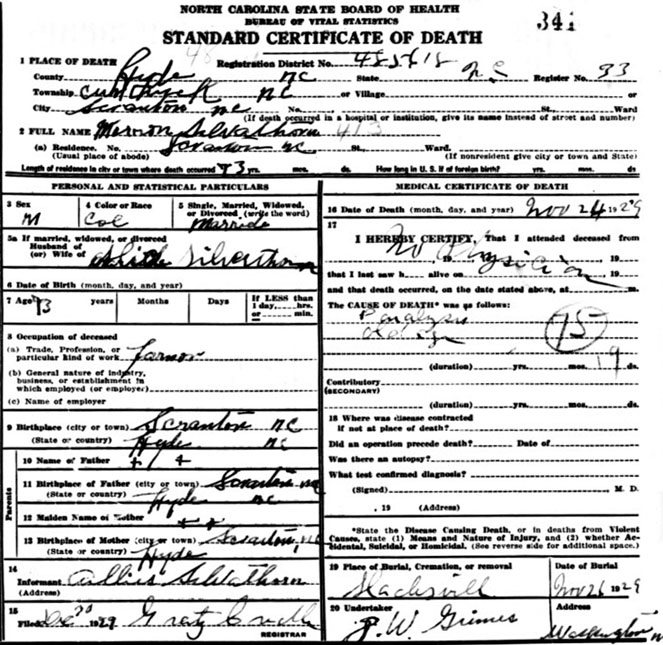 NORTH CAROLINA STATE BOARD OF HEALTH
BUREAU OF VITAL STATISTICS
STANDARD CERTIFICATE OF DEATH
341
1 PLACE OF DEATH Registration District No.
County Hyde NC State N C Register No. 33
Township NC or Village
City Scranton NC No. St., Ward
(If death occurred in a hospital or institution, give its name instead of street and number)
2 FULL NAME
(a) Residence. No. Scranton NC St., Ward.
(Usual place of abode) (If nonresident give city or town and State)
Length of residence in city or town where death occurred 93 yrs. mos. ds. How long in U. S. if of foreign birth? yrs. mos. ds.
PERSONAL AND STATISTICAL PARTICULARS
3 Sex
M
4 Color or Race
Col
5 Single, Married, Widowed,
or Divorced (write the word)
Marride
5a If married, widowed, or divorced
Husband of
(or) Wife of Silverthorn
6 Date of Birth (month, day, and year)
7 Age 93 years Months Days If LESS than
1 day, hrs.
or min.
8 Occupation of deceased
(a) Trade, Profession, or
particular kind of work Farmor
(b) General nature of industry,
business, or establishment in
which employed (or employer)
(c) Name of employer
9 Birthplace (city or town) Scranton NC
(State or country) Hyde NC
Parents
10 Name of Father + +
11 Birthplace of Father (city or town) Scranton NC
(State or country) Hyde NC
12 Maiden Name of Mother + +
13 Birthplace of Mother (city or town) Scranton, NC
(State or country) Hyde
14
Informant
(Address)
15
Filed Dec 20 1929
REGISTRAR
MEDICAL CERTIFICATE OF DEATH
16 Date of Death (month, day, and year) Nov 24 1929
17
I HEREBY CERTIFY, That I attended deceased from
No Physician 19
that I last saw h alive on 19
and that death occurred, on the date stated above, at m.
The CAUSE OF DEATH* was as follows:
Paralysis
75
(duration) yrs. mos. 19 ds.
Contributory
(SECONDARY)
(duration) yrs. mos. ds.
18 Where was disease contracted
if not at place of death?
Did an operation precede death? Date of
Was there an autopsy?
What test confirmed diagnosis?
(Signed) M. D.
, 19 (Address)
*State the Disease Causing Death, or in deaths from Violent
Causes, state (1) Means and Nature of Injury, and (2) whether Ac-
cidental, Suicidal, or Homicidal. (See reverse side for additional space.)
19 Place of Burial, Cremation, or removal Date of Burial
Nov 26 1929
20 Undertaker Address
J. W. Grimes Washington